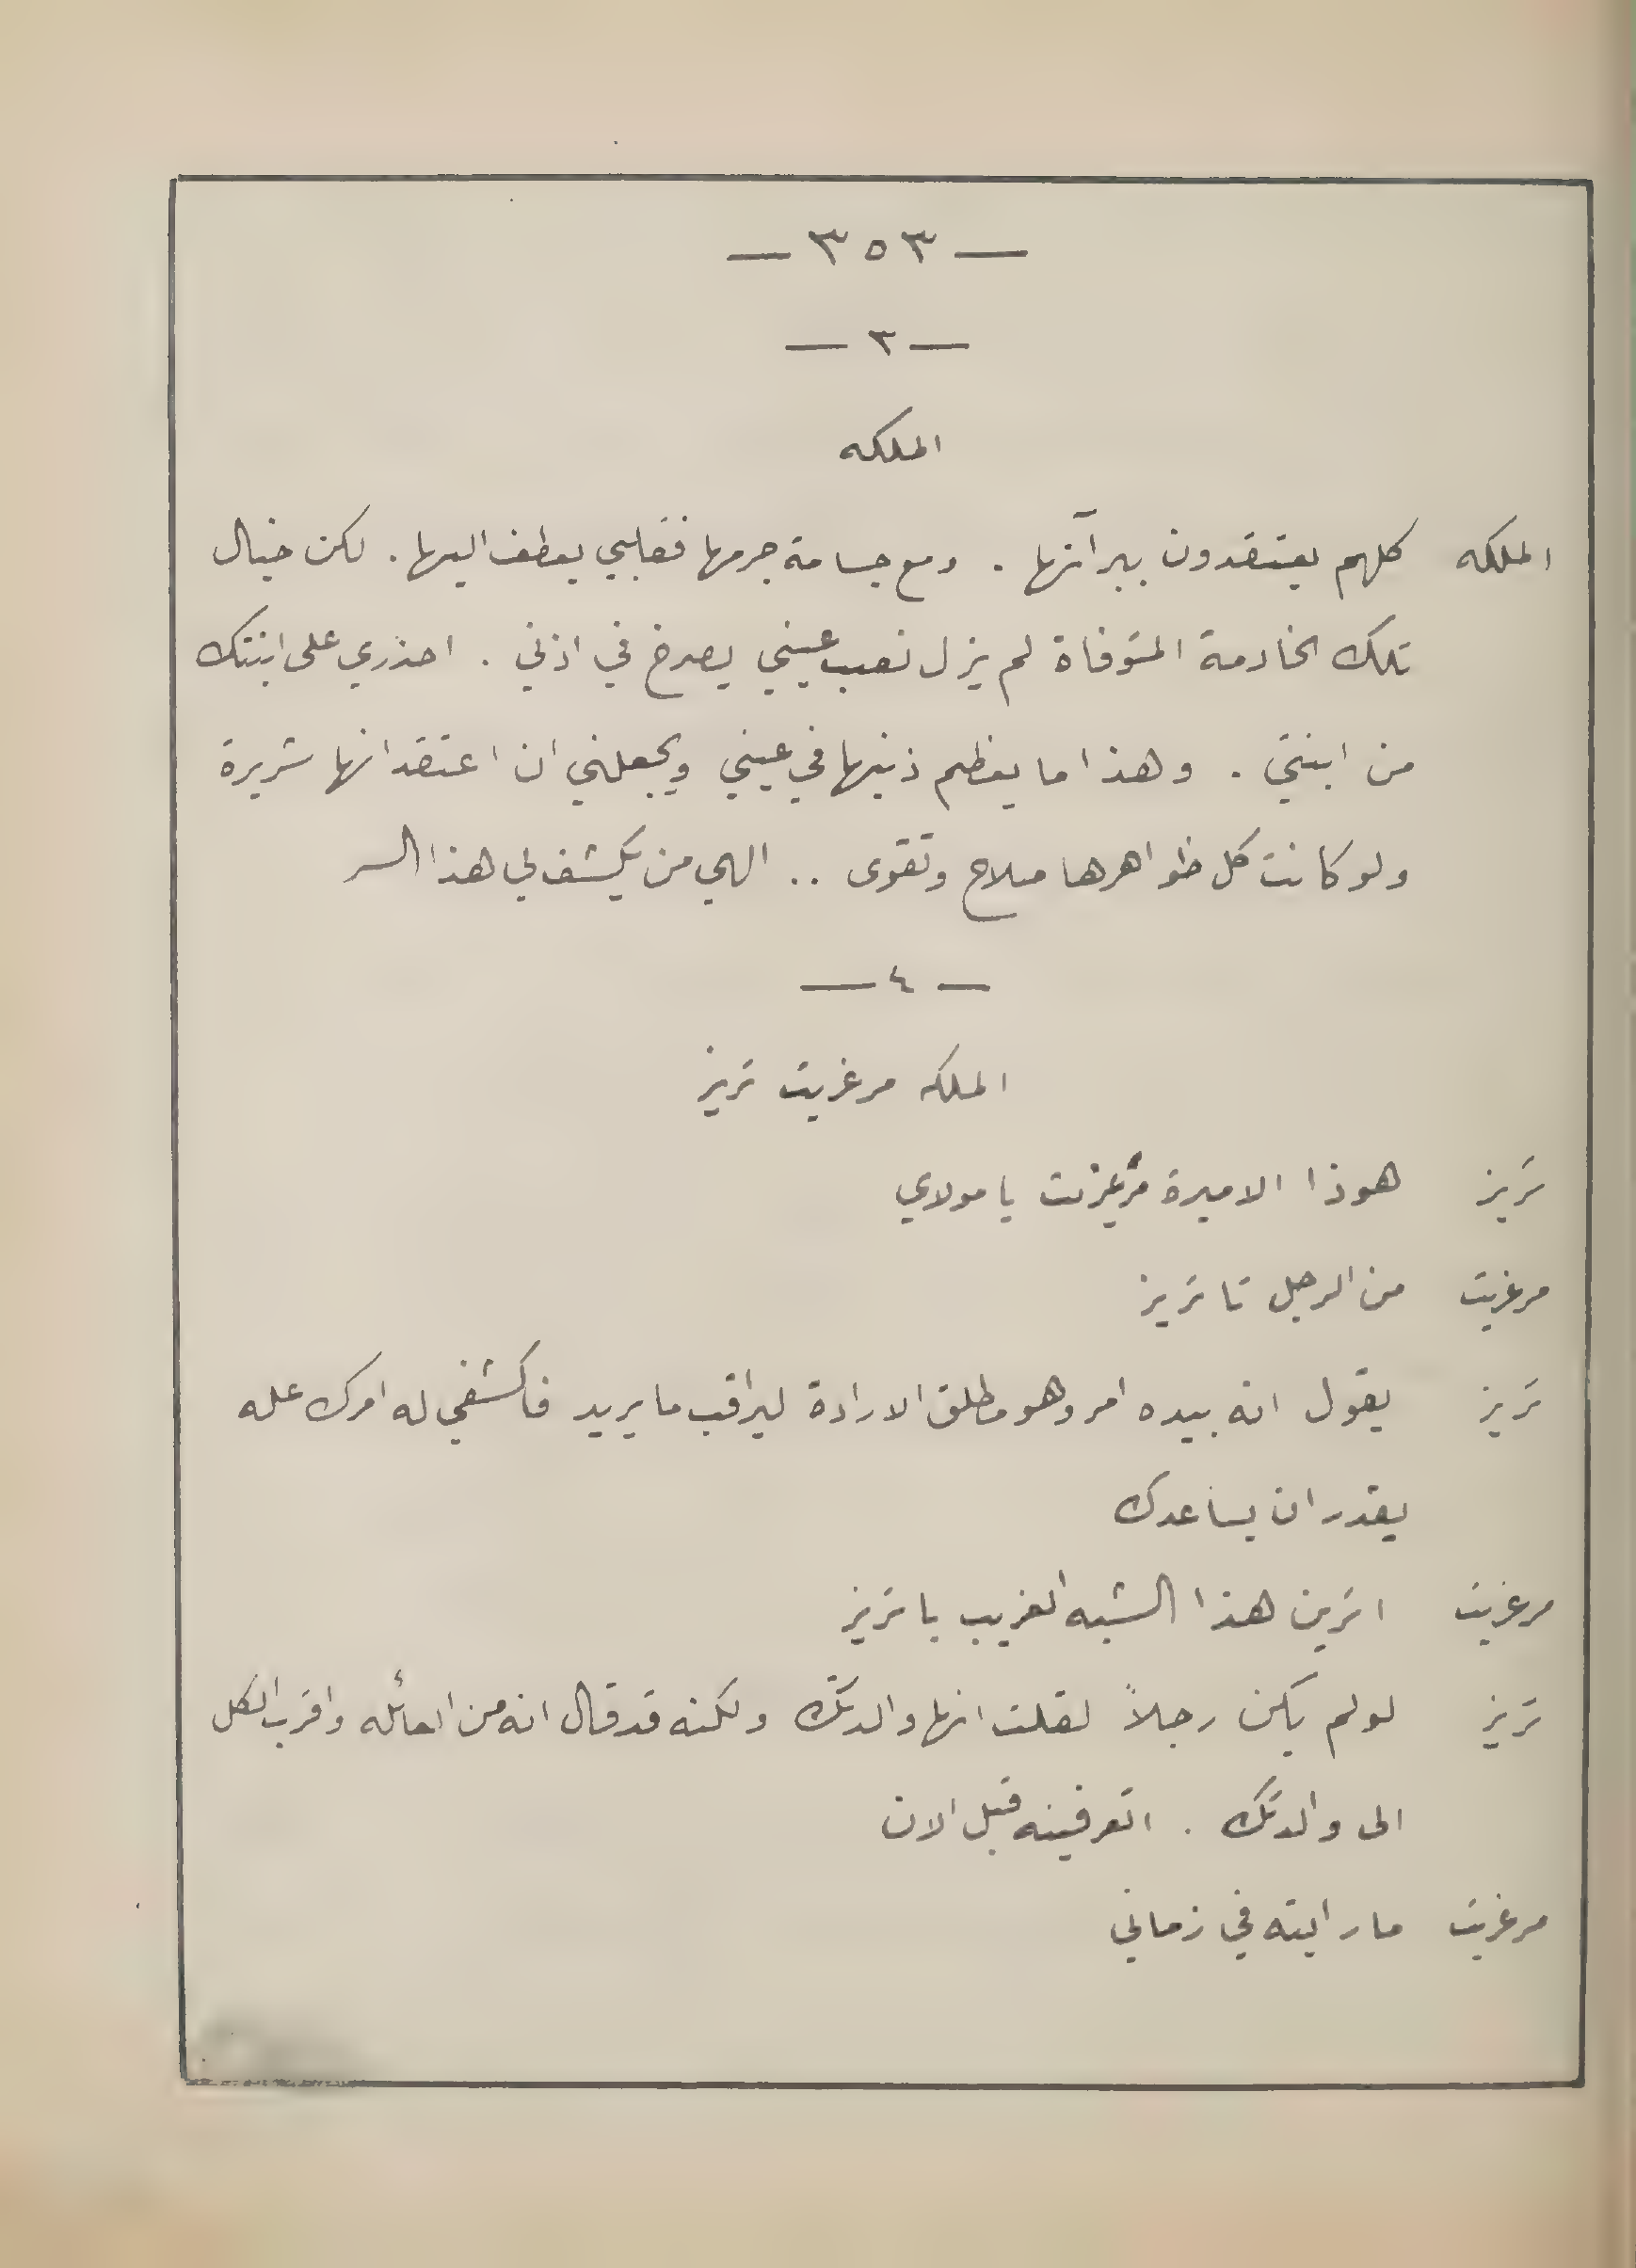 — ٣٥٣ —
— ٣ —
الملكه
الملكه كلهم يعتقدون ببرآتها . ومع جسامة جرمها فقلبي يعطف اليها . لكن خيال
تلك الخادمة المتوفاة لم يزل نصب عيني يصرخ في اذني . احذري على ابنتك
من ابنتي . وهذا ما يعظم ذنبها في عيني ويجعلني ان اعتقد انها شريرة
ولو كانت كل ظواهرها صلاح وتقوى .. الهي من يكشف لي هذا السر
— ٤ —
الملكه مرغريت تريز
تريز هوذا الاميرة مرغريت يا مولاي
مرغريت من الرجل تا تريز
تريز يقول انه بيده امر وهو مطلق الارادة ليراقب ما يريد فاكشفي له امرك عله
يقدر ان يساعدك
مرغريت اترين هذا الشبه الغريب يا تريز
تريز لو لم يكن رجلاً لقلت انها والدتك ولكنه قد قال انه من العائله واقرب الكل
الى والدتك . اتعرفينه قبل الان
مرغريت ما رايته في زماني